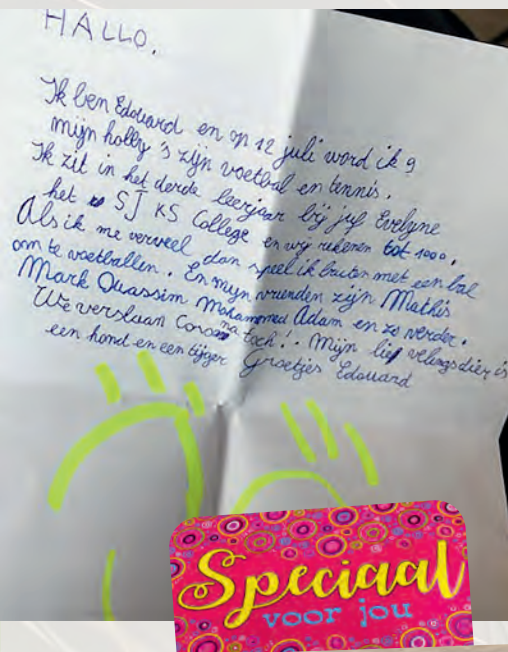 HALLO,
Ik ben Edouard en op 12 juli word ik 9
mijn holly's zijn voetbal en tennis.
Ik zit in het derde leerjaar bij juf Evelyne
het SJKS College en wij rekenen tot 1000.
Als ik me verveel dan speel ik buiten met een bal
om te voetballen. En mijn vrienden zijn Mathis
Mark Ouassim Mohammed Adam en zo verder.
We verslaan Corona toch!. Mijn lievelingsdier is
een hond en een tijger Groetjes Edouard
Speciaal
voor jou